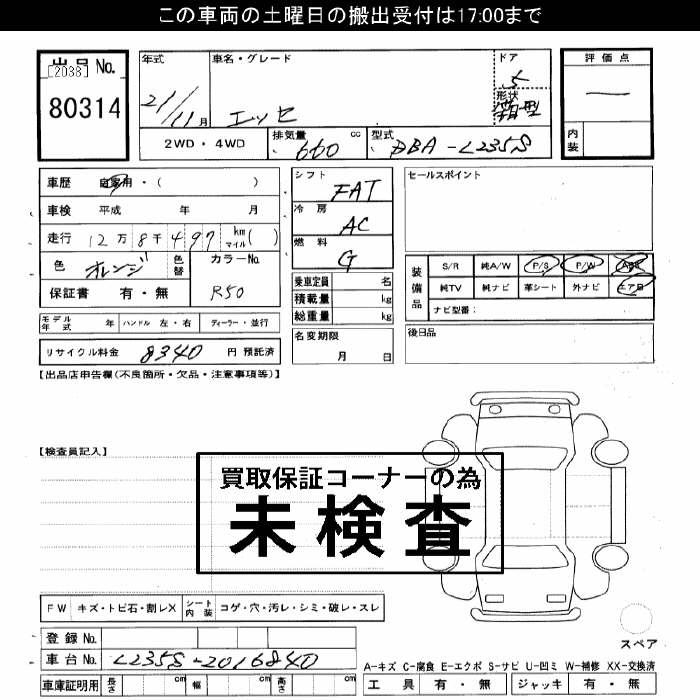 この車両の土曜日の搬出受付は17:00まで
出品 No.
[2038]
80314
年式
21/11月
車名・グレード
エッセ
ドア
5
形状
箱型
評価点
—
内装
2WD・4WD
排気量 660 cc
型式 DBA-L235S
車歴 自家用・( )
車検 平成 年 月
走行 12万8千497 km マイル( )
色 オレンジ
色替
カラーNo.
R50
保証書 有・無
モデル年式 年
ハンドル 左・右
ディーラー・並行
リサイクル料金 8340 円 預託済
シフト FAT
冷房 AC
燃料 G
乗車定員 名
積載量 kg
総重量 kg
名変期限
月 日
セールスポイント
装備品
S/R 純A/W P/S P/W ABS
純TV 純ナビ 革シート 外ナビ エアB
ナビ型番:
後日品
【出品店申告欄(不良箇所・欠品・注意事項等)】
【検査員記入】
買取保証コーナーの為
未検査
FW キズ・トビ石・割レX
シート内装 コゲ・穴・汚レ・シミ・破レ・スレ
登録 No.
車台 No. L235S-2016840
車庫証明用 長さ cm 幅 cm 高さ cm
スペア
A-キズ C-腐食 E-エクボ S-サビ U-凹ミ W-補修 XX-交換済
工具 有・無 ジャッキ 有・無